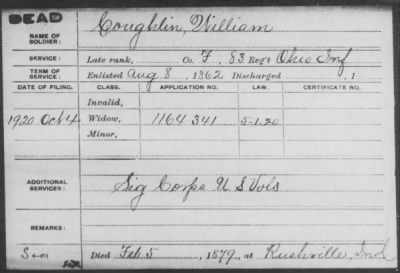 DEAD
NAME OF SOLDIER: Coughlin, William
SERVICE: Late rank, Co. F. 83 Reg't Ohio Inf
TERM OF SERVICE: Enlisted Aug 8, 1862 Discharged , 1
DATE OF FILING. CLASS. APPLICATION NO. LAW. CERTIFICATE NO.
Invalid,
1920 Oct 4 Widow, 1164 341 5-1.20
Minor,
ADDITIONAL SERVICES: Sig Corps U S Vols
REMARKS:
Died Feb 5, 1879, at Rushville, Ind